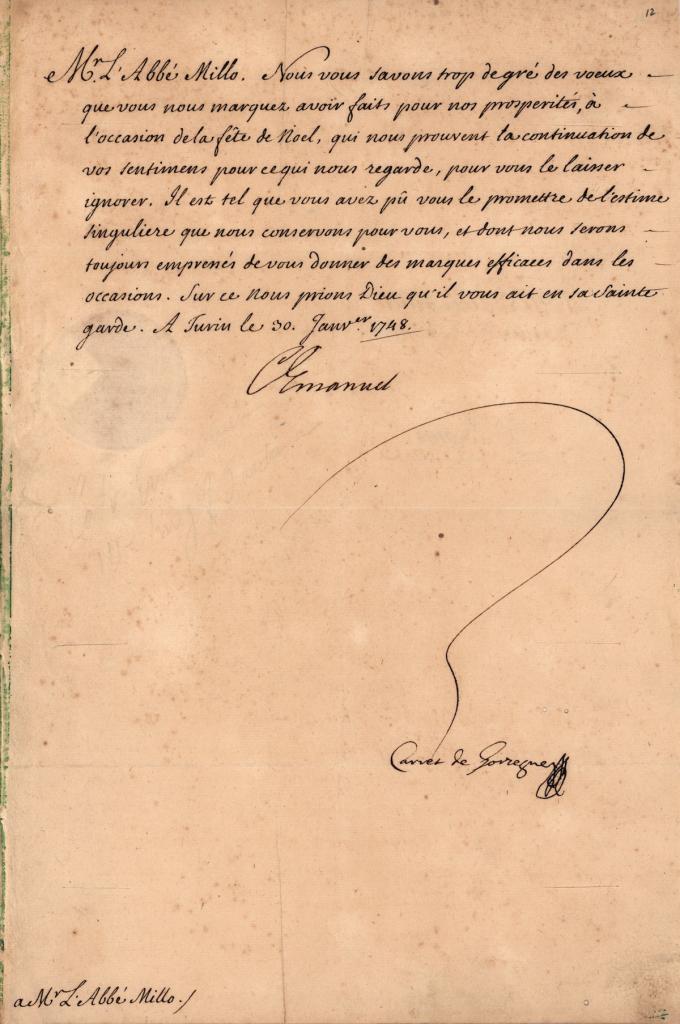 12
Mr. L'Abbé Millo. Nous vous savons trop de gré des voeux
que vous nous marquez avoir faits pour nos prosperités, à
l'occasion de la fête de Noel, qui nous prouvent la continuation de
vos sentimens pour ce qui nous regarde, pour vous le laisser
ignorer. Il est tel que vous avez pû vous le promettre de l'estime
singuliere que nous conservons pour vous, et dont nous serons
toujours empressés de vous donner des marques efficaces dans les
occasions. Sur ce Nous prions Dieu qu'il vous ait en sa Sainte
garde. A Turin le 30. Janv.er 1748.
C Emanuel
Carret de Gorzegne
a Mr L'Abbé Millo./